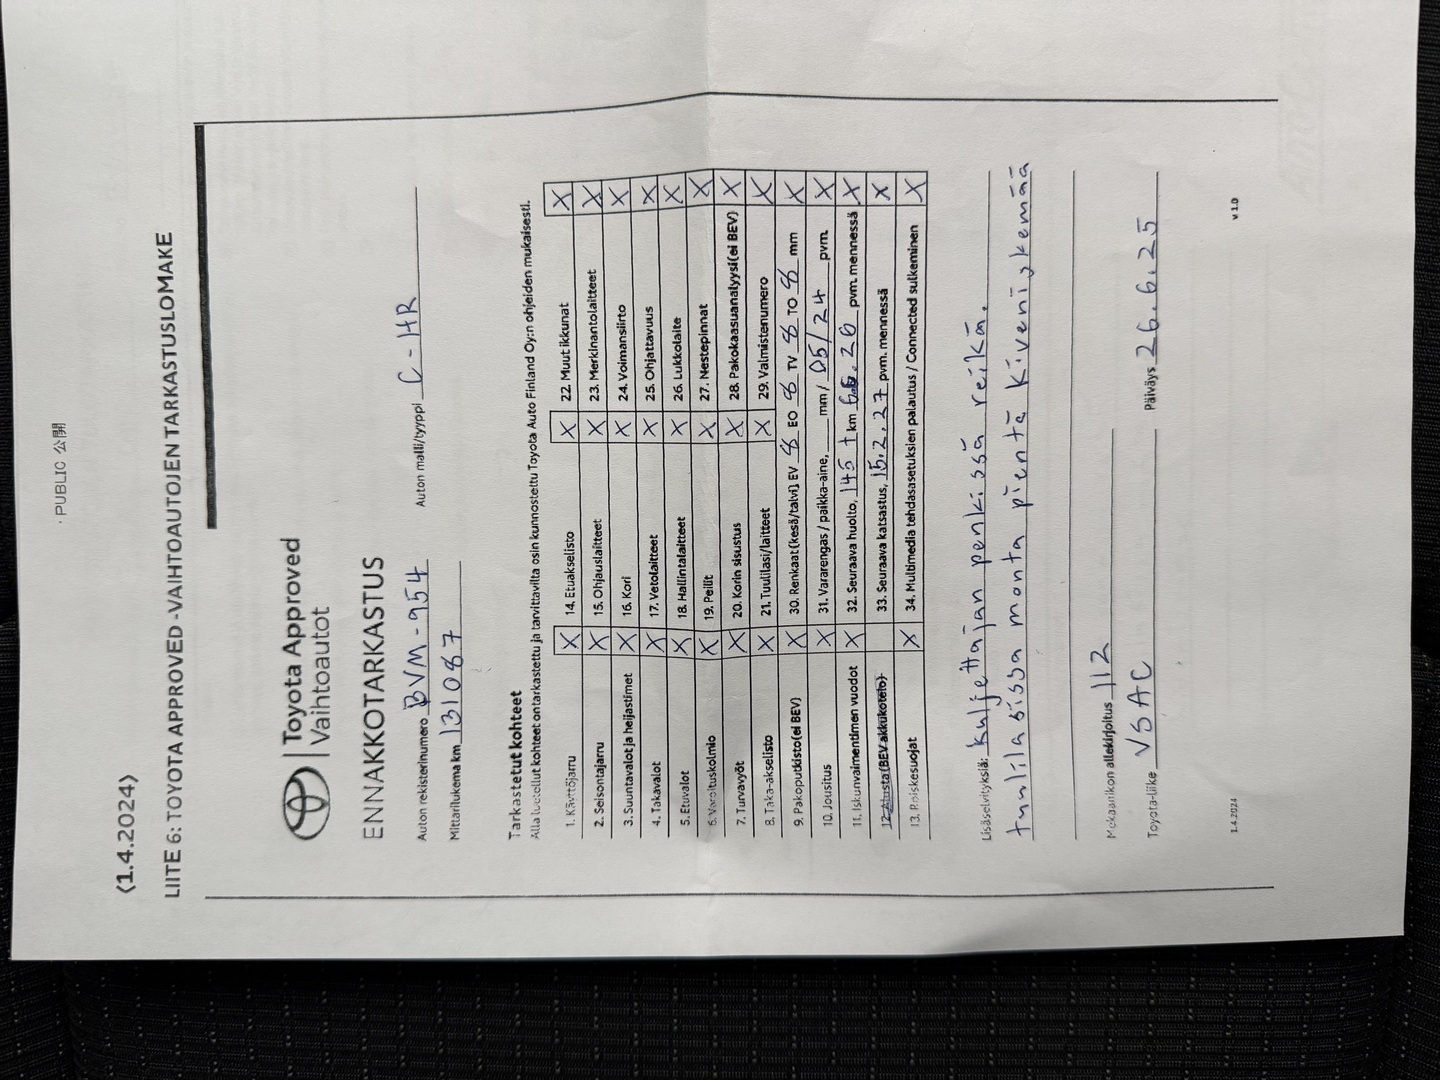 · PUBLIC 公開
(1.4.2024)
LIITE 6: TOYOTA APPROVED -VAIHTOAUTOJEN TARKASTUSLOMAKE
Toyota Approved
Vaihtoautot
ENNAKKOTARKASTUS
Auton rekisterinumero BVM-954 Auton malli/tyyppi C-HR
Mittarilukema km 131087
Tarkastetut kohteet
Alla luetellut kohteet on tarkastettu ja tarvittavilta osin kunnostettu Toyota Auto Finland Oy:n ohjeiden mukaisesti.
1. Käyttöjarru X 14. Etuakselisto X 22. Muut ikkunat X
2. Seisontajarru X 15. Ohjauslaitteet X 23. Merkinantolaitteet X
3. Suuntavalot ja heijastimet X 16. Kori X 24. Voimansiirto X
4. Takavalot X 17. Vetolaitteet X 25. Ohjattavuus X
5. Etuvalot X 18. Hallintalaitteet X 26. Lukkolaite X
6. Varoituskolmio X 19. Peilit X 27. Nestepinnat X
7. Turvavyöt X 20. Korin sisustus X 28. Pakokaasuanalyysi (ei BEV) X
8. Taka-akselisto X 21. Tuulilasi/laitteet X 29. Valmistenumero X
9. Pakoputkisto (ei BEV) X 30. Renkaat (kesä/talvi) EV 8 EO 8 TV 8 TO 8 mm X
10. Jousitus X 31. Vararengas / paikka-aine, mm / 05/24 pvm. X
11. Iskunvaimentimen vuodot X 32. Seuraava huolto, 145 t km 6.26 pvm. mennessä X
12. Alusta (BEV akkukotelo) 33. Seuraava katsastus, 15.2.27 pvm. mennessä X
13. Roiskesuojat X 34. Multimedia tehdasasetuksien palautus / Connected sulkeminen X
Lisäselvityksiä: kuljettajan penkissä reikä.
tuulilasissa monta pientä kiveniskemää
Mekaanikon allekirjoitus 112
Toyota-liike VSAC Päiväys 26.6.25
1.4.2024 v 1.0